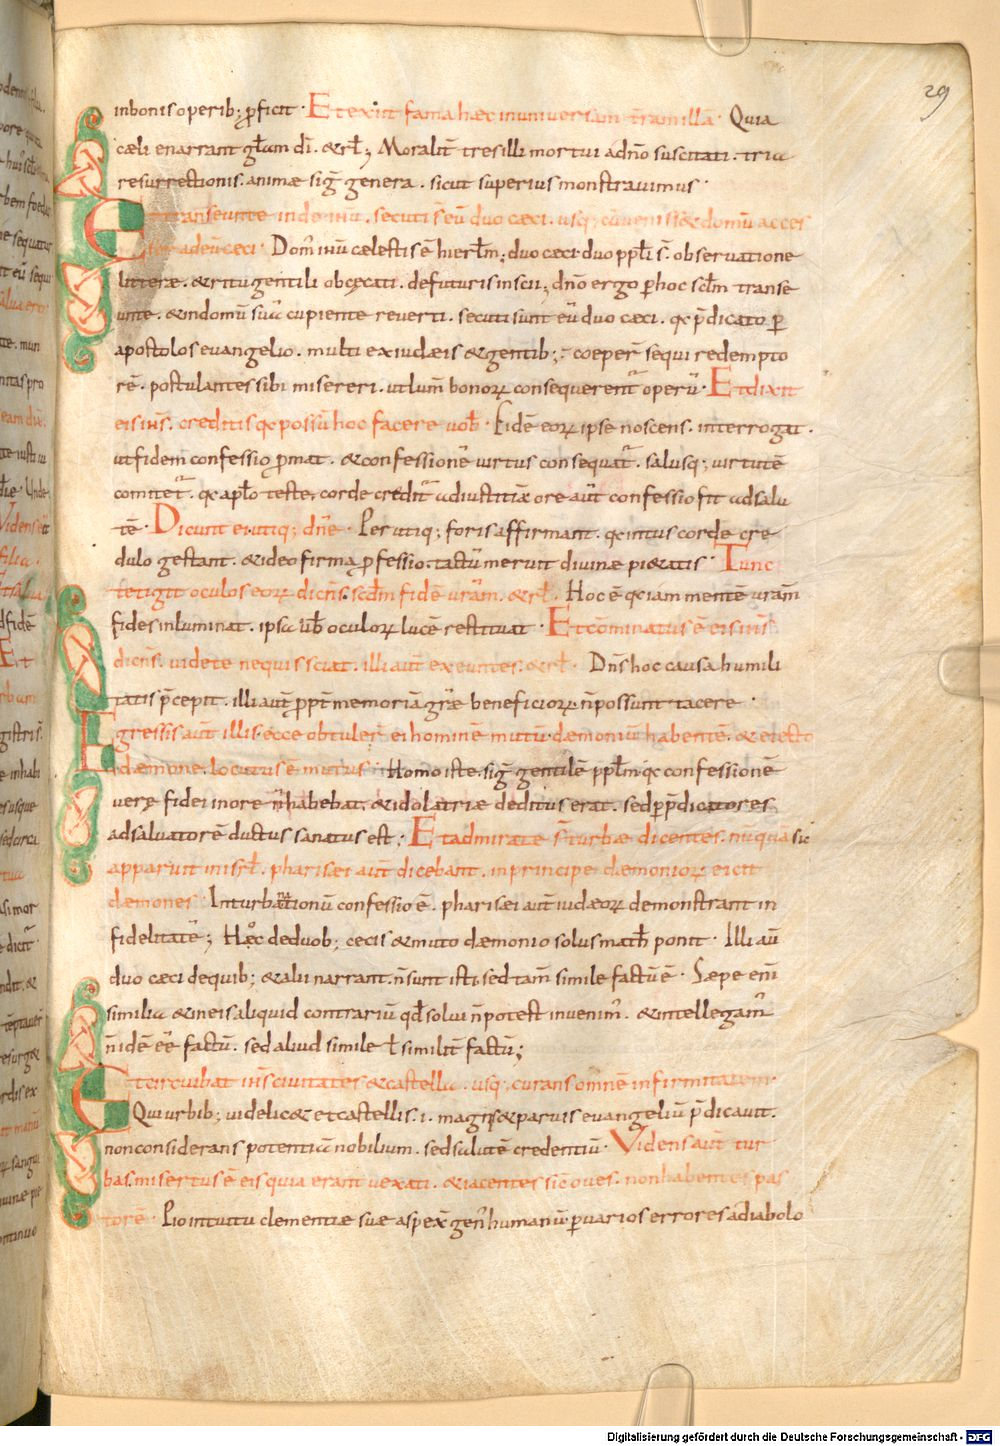 29
in bonis operib; ꝓficit · Et exiit fama haec in universam terram illā · Quia
cæli enarrant gl̄am dī · & rł; Moralit̄ tres illi mortui a dn̄o suscitati · tria
resurrectionis · animæ siḡ genera · sicut superius monstravimus ·
Et transeunte inde ihu · secuti s̄ eū duo cæci · usq; cū venisset domū acces
ser ad eū ceci · Dom̄ ihu cælestis ē hierłm; duo cæci duo ppłi s̄ · observatione
litteræ · & ritu gentili obcęcati · de futuris inscii; dn̄o ergo ꝑ hoc scłm transe
unte · & in domū suā cupiente reverti · secuti sunt eū duo cæci · qa p̄dicato ꝑ
apostolos evangelio · multi ex iudæis & gentib; · coeper̄ sequi redempto
rē · postulantes sibi misereri · ut lum̄ bonoꝝ consequerent̄ operū · Et dixit
eis ihs · creditis qa possū hoc facere vob · Fidē eoꝝ ipse noscens · interrogat ·
ut fidem confessio ꝓmat · & confessionē virtus consequat̄ · salusq; virtutē
comitet̄ · qa aplo teste · corde credit̄ ad iustitiā ore aut̄ confessio fit ad salu
tē · Dicunt ei utiq; dn̄e · Per utiq; foris affirmant · qa intus corde cre
dulo gestant · & ideo firma ꝓfessio · tactū meruit divinæ pi&atis · Tunc
tetigit oculos eoꝝ dicn̄s · scdm̄ fidē vr̄am · & rł · Hoc ē qa iam mentē vr̄am
fides inluminat · ipsa vob oculoꝝ lucē restituat · Et cōminatus ē eis ihs
dicn̄s · videte ne quis sciat · illi aut̄ exeuntes · & rł · Dn̄s hoc causa humili
tatis p̄cepit · illi aut̄ ꝓpt̄ memoriā gr̄æ beneficioꝝ n̄ possunt tacere ·
Egressis aut̄ illis · ecce obtuler̄ ei hominē mutū dæmoniū habentē · & eiecto
dæmone · locutus ē mutus · Homo iste · siḡ gentilē ppłm · qa confessionē
veræ fidei in ore n̄ habebat · & idolatriæ deditus erat · sed ꝑ p̄dicatores
ad salvatorē ductus sanatus est · Et admiratæ s̄ turbæ dicentes · nūqua sic
apparuit in isrł · pharisæi aut̄ dicebant · in principe dæmonioꝝ eicit
dæmones · In turba nationū confessio ē · pharisæi aut̄ iudæoꝝ demonstrant in
fidelitatē; Hæc de duob; cecis & muto dæmonio solus math̄ ponit · Illi aū
duo cæci de quib; & alii narrant · n̄ sunt isti sed tam̄ simile factū ē · Sæpe eni
similia & in eis aliquid contrariū qd̄ solvi n̄ potest invenim̄ · & intellegam̄
n̄ idē ēē factū · sed aliud simile ł similit̄ factū;
Et circuibat ihs civitates & castella · usq; curans omnē infirmitatem ·
Qui urbib; videlic& et castellis · i · magnis & parvis evangeliū p̄dicavit ·
non considerans potentiā nobilium · sed salutē credentiū · Videns aut̄ tur
bas · misertus ē eis quia erant vexati · & iacentes sic oves · non habentes pas
torē · Pio intuitu clementiæ suæ aspex̄ gen̄ humanū ꝑ varios errores a diabolo
Digitalisierung gefördert durch die Deutsche Forschungsgemeinschaft - DFG